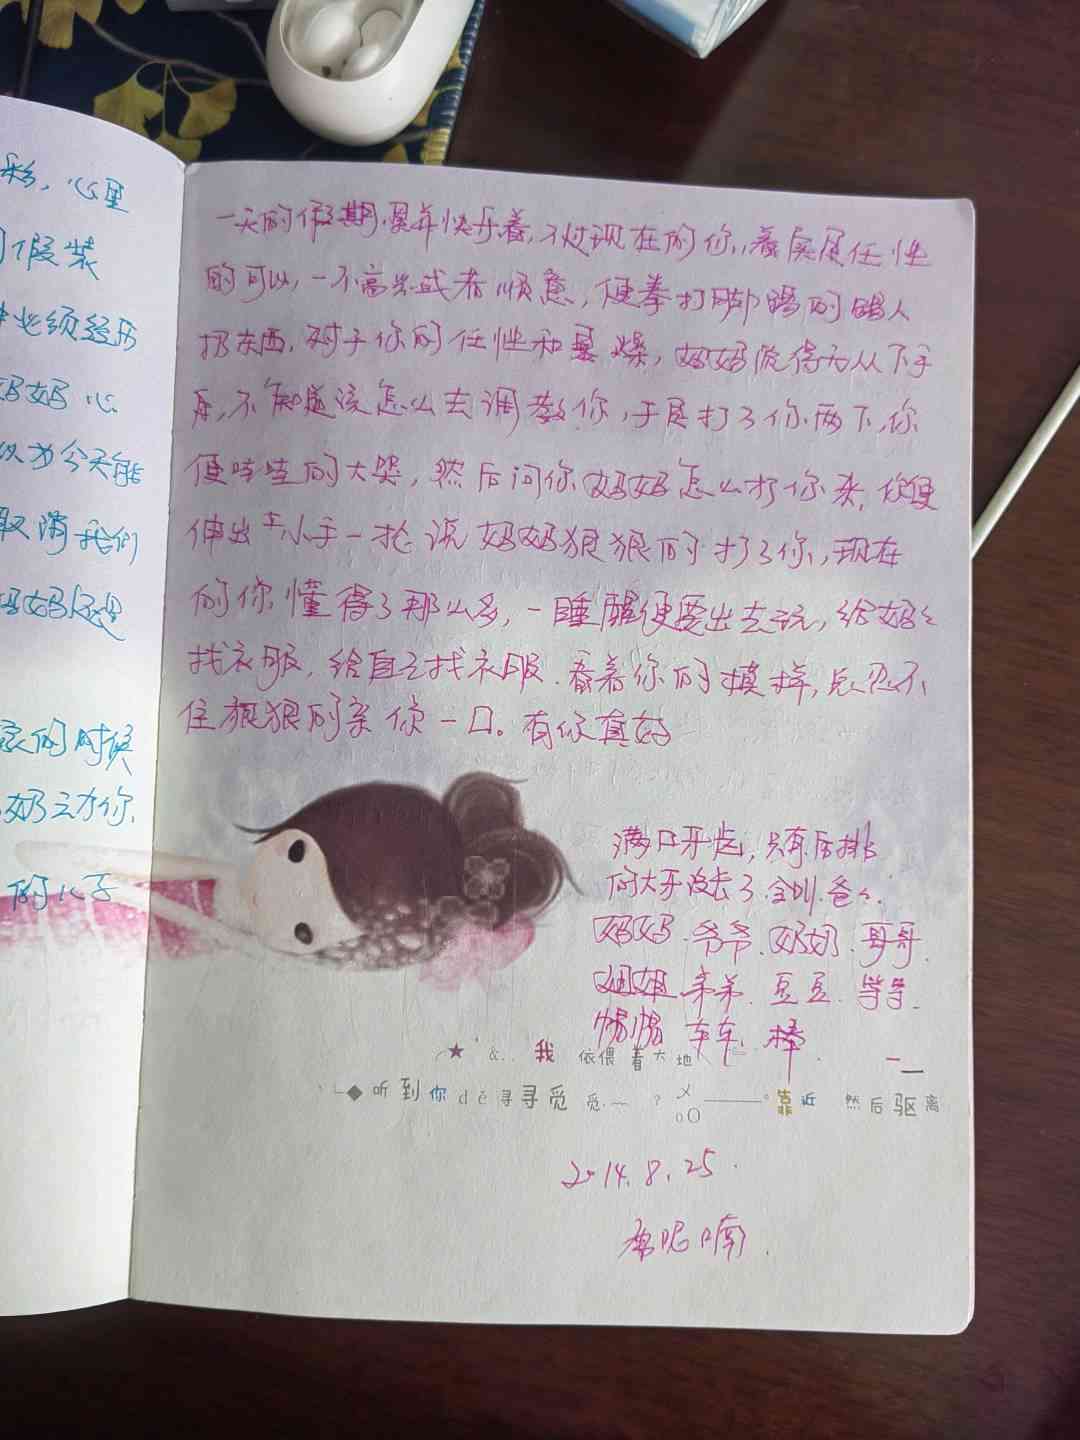 彩，心里
假装
必须经历
妈妈心
以为今天能
取消我们
妈妈还是
的时候
你
的儿子
一天的假期，累并快乐着，不过现在的你，着实是任性
的可以，一不高兴或者顺意，便拳打脚踢的踢人
扔东西，对于你的任性和暴燥，妈妈觉得无从下手
不知道该怎么去调教你，于是打了你两下，你
便哇哇的大哭，然后问你妈妈怎么打你来，你便
伸出小手一抡说妈妈狠狠的打了你，现在
的你懂得了那么多，一睡醒便要出去玩，给妈妈
找衣服，给自己找衣服，看着你的模样，忍不
住狠狠的亲你一口。有你真好
满口牙齿，只有后排
的大牙没长了 会叫 爸爸
妈妈、爷爷、奶奶、哥哥、
姐姐 弟弟、豆豆、等等、
帽帽 车车、棒、
★ &.. 我 依偎着大地
◆听到你dě寻寻觅觅.~ ? 靠近 然后驱离
2014.8.25.
喃